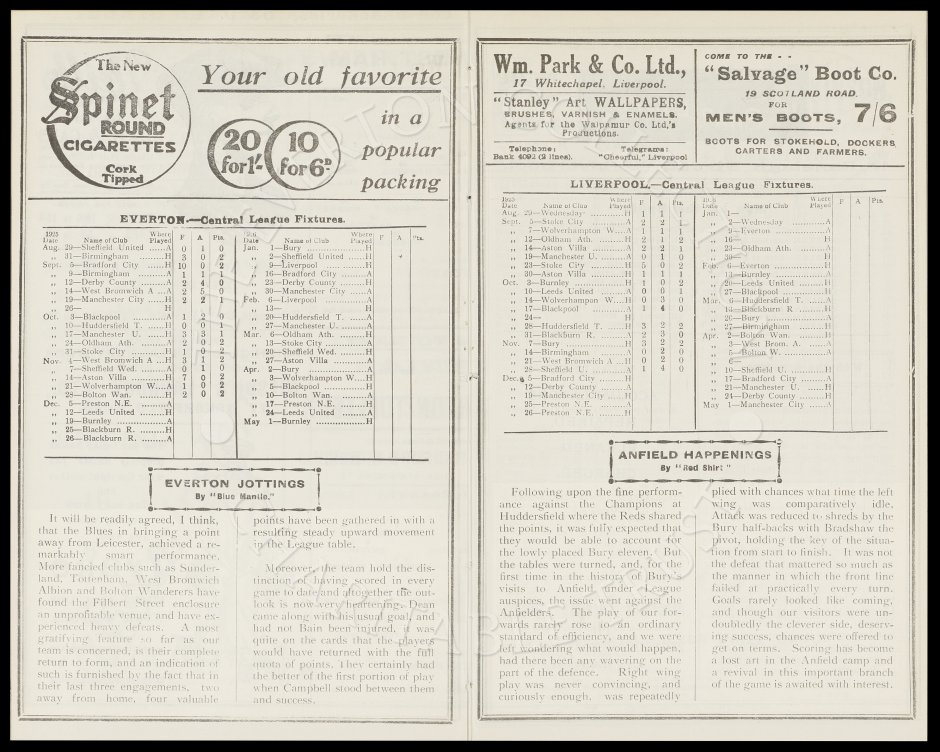 The New
Spinet
ROUND
CIGARETTES
Cork
Tipped
Your old favorite
20
for 1/-
10
for 6D.
in a
popular
packing
EVERTON—Central League Fixtures.
1925
Date Name of Club Where Played F A Pts.
Aug. 29—Sheffield United ......A 0 1 0
„ 31—Birmingham ..........H 3 0 2
Sept. 5—Bradford City ........H 10 0 2
„ 9—Birmingham ..........A 1 1 1
„ 12—Derby County ........A 2 4 0
„ 14—West Bromwich A ...A 2 5 0
„ 19—Manchester City ......H 2 2 1
„ 26— H
Oct. 3—Blackpool ............A 1 2 0
„ 10—Huddersfield T. ......H 0 0 1
„ 17—Manchester U. ........H 3 3 1
„ 24—Oldham Ath. ..........A 2 0 2
„ 31—Stoke City ............H 1 0 2
Nov. 1—West Bromwich A ...H 3 1 2
„ 7—Sheffield Wed. ........A 0 1 0
„ 14—Aston Villa ............H 7 0 2
„ 21—Wolverhampton W....A 1 0 2
„ 28—Bolton Wan. ..........H 2 0 2
Dec. 5—Preston N.E. ..........A
„ 12—Leeds United ..........H
„ 19—Burnley ................A
„ 25—Blackburn R. ..........H
„ 26—Blackburn R. ..........A
Date Name of Club Where Played F A Pts.
Jan. 1—Bury ....................H
„ 2—Sheffield United ......H
„ 9—Liverpool ..............H
„ 16—Bradford City ........A
„ 23—Derby County ........H
„ 30—Manchester City ......A
Feb. 6—Liverpool ..............A
„ 13—
„ 20—Huddersfield T. ......A
„ 27—Manchester U. ........A
Mar. 6—Oldham Ath. ..........H
„ 13—Stoke City ............A
„ 20—Sheffield Wed. ........H
„ 27—Aston Villa ............A
Apr. 2—Bury ....................A
„ 3—Wolverhampton W....H
„ 5—Blackpool ..............H
„ 10—Bolton Wan. ..........A
„ 17—Preston N.E. ..........H
„ 24—Leeds United ..........A
May 1—Burnley ................H
EVERTON JOTTINGS
By "Blue Mantle."
It will be readily agreed, I think,
that the Blues in bringing a point
away from Leicester, achieved a re-
markably smart performance.
More fancied clubs such as Sunder-
land, Tottenham, West Bromwich
Albion and Bolton Wanderers have
found the Filbert Street enclosure
an unprofitable venue, and have ex-
perienced heavy defeats. A most
gratifying feature so far as our
team is concerned, is their complete
return to form, and an indication of
such is furnished by the fact that in
their last three engagements, two
away from home, four valuable
points have been gathered in with a
resulting steady upward movement
in the League table.
Moreover, the team hold the dis-
tinction of having scored in every
game to date and altogether the out-
look is now very heartening. Dean
came along with his usual goal and
had not Bain been injured, it was
quite on the cards that the players
would have returned with the full
quota of points. They certainly had
the better of the first portion of play
when Campbell stood between them
and success.
Wm. Park & Co. Ltd.,
17 Whitechapel, Liverpool.
"Stanley" Art WALLPAPERS,
BRUSHES, VARNISH & ENAMELS.
Agents for the Walpamur Co. Ltd,'s
Productions.
Telephone:
Bank 4092 (2 lines).
Telegrams:
"Cheerful," Liverpool
COME TO THE - -
"Salvage" Boot Co.
19 SCOTLAND ROAD.
FOR
MEN'S BOOTS, 7/6
BOOTS FOR STOKEHOLD, DOCKERS
CARTERS AND FARMERS.
LIVERPOOL.—Central League Fixtures.
1925
Date Name of Club Where Played F A Pts.
Aug. 29—Wednesday ............H 1 1 1
Sept. 5—Stoke City ............H 2 2 1
„ 7—Wolverhampton W....A 1 1 1
„ 12—Oldham Ath ..........H 2 1 2
„ 14—Aston Villa ............A 2 2 1
„ 19—Manchester U. ........A 0 1 0
„ 23—Stoke City ............H 5 0 2
„ 30—Aston Villa ............H 1 1 1
Oct. 3—Burnley ................H 1 0 2
„ 10—Leeds United ..........A 0 0 1
„ 14—Wolverhampton W....H 0 3 0
„ 17—Blackpool ..............A 1 4 0
„ 24— H
„ 28—Huddersfield T. ......H 3 2 2
„ 31—Blackburn R. ..........A 2 3 0
Nov. 7—Bury ....................H 3 2 2
„ 14—Birmingham ..........A 0 2 0
„ 21—West Bromwich A ...H 0 2 0
„ 28—Sheffield U. ............A 1 4 0
Dec. 5—Bradford City ........H
„ 12—Derby County ........A
„ 19—Manchester City ......H
„ 25—Preston N.E. ..........A
„ 26—Preston N.E. ..........H
Date Name of Club Where Played F A Pts.
Jan. 1—
„ 2—Wednesday ............A
„ 9—Everton ................A
„ 16— H
„ 23—Oldham Ath ..........A
„ 30—
Feb 6—Everton ................H
„ 13—Burnley ................A
„ 20—Leeds United ..........H
„ 27—Blackpool ..............H
Mar. 6—Huddersfield T. ......A
„ 13—Blackburn R ..........H
„ 20—Bury ....................A
„ 27—Birmingham ..........H
Apr. 2—Bolton Wan. ..........H
„ 3—West Brom. A. ........A
„ 5—Bolton W. ..............A
„ 6—
„ 10—Sheffield U. ............H
„ 17—Bradford City ........A
„ 21—Manchester U. ........H
„ 24—Derby County ........H
May 1—Manchester City ......A
ANFIELD HAPPENINGS
By "Red Shirt"
Following upon the fine perform-
ance against the Champions at
Huddersfield where the Reds shared
the points, it was fully expected that
they would be able to account for
the lowly placed Bury eleven. But
the tables were turned, and, for the
first time in the history of Bury's
visits to Anfield under League
auspices, the issue went against the
Anfielders. The play of our for-
wards rarely rose to an ordinary
standard of efficiency, and we were
left wondering what would happen,
had there been any wavering on the
part of the defence. Right wing
play was never convincing, and
curiously enough, was repeatedly
plied with chances what time the left
wing was comparatively idle.
Attack was reduced to shreds by the
Bury half-backs with Bradshaw the
pivot, holding the key of the situa-
tion from start to finish. It was not
the defeat that mattered so much as
the manner in which the front line
failed at practically every turn.
Goals rarely looked like coming,
and though our visitors were un-
doubtedly the cleverer side, deserv-
ing success, chances were offered to
get on terms. Scoring has become
a lost art in the Anfield camp and
a revival in this important branch
of the game is awaited with interest.